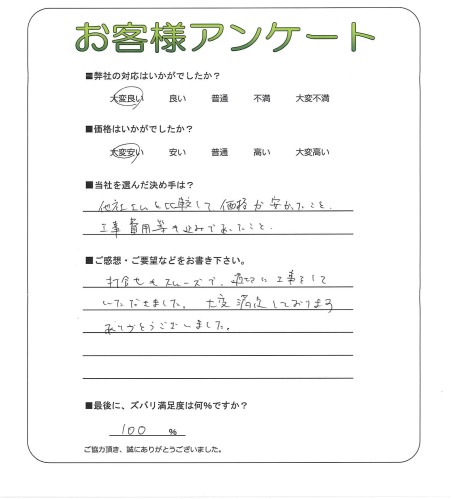 お客様アンケート
■弊社の対応はいかがでしたか？
大変良い 良い 普通 不満 大変不満
■価格はいかがでしたか？
大変安い 安い 普通 高い 大変高い
■当社を選んだ決め手は？
他社さんと比較して価格が安かったこと、
工事費用等も込みであったこと。
■ご感想・ご要望などをお書き下さい。
打合せもスムーズで、適切に工事をして
いただきました。大変満足しております
ありがとうございました。
■最後に、ズバリ満足度は何%ですか？
100 %
ご協力頂き、誠にありがとうございました。